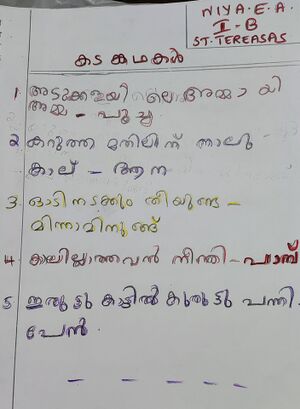 NIYA.E.A.
II-B
ST.TEREASAS
കടങ്കഥകൾ
1 അടുക്കളയിലൊരമ്മായി
അമ്മ - പൂച്ച
2 കറുത്ത മതിലിന് നാലു
കാല് - ആന
3 ഓടിനടക്കും തീയുണ്ട -
മിന്നാമിനുങ്ങ്
4 കാലില്ലാത്തവൻ നീന്തി - പാമ്പ്
5 ഇരുട്ടു കാട്ടിൽ കുരുട്ടു പന്നി.
പേൻ.